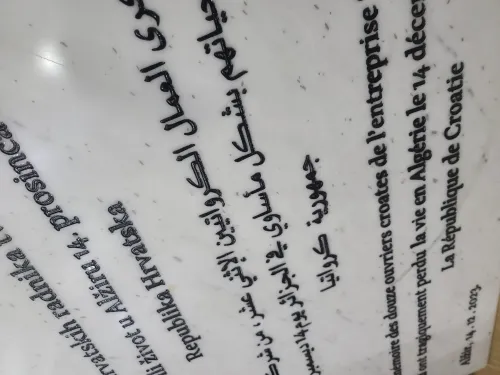 rvatskih radnika i
li život u Alžiru 14. prosinca
Republika Hrvatska
كرى العمال الكرواتيين الإثني عشر، من شرك
حياتهم بشكل مأساوي في الجزائر يوم 14 ديسمبر
جمهورية كرواتيا
mémoire des douze ouvriers croates de l'entreprise
ont tragiquement perdu la vie en Algérie le 14 décem
La République de Croatie
Alžir, 14. 12. 2023.